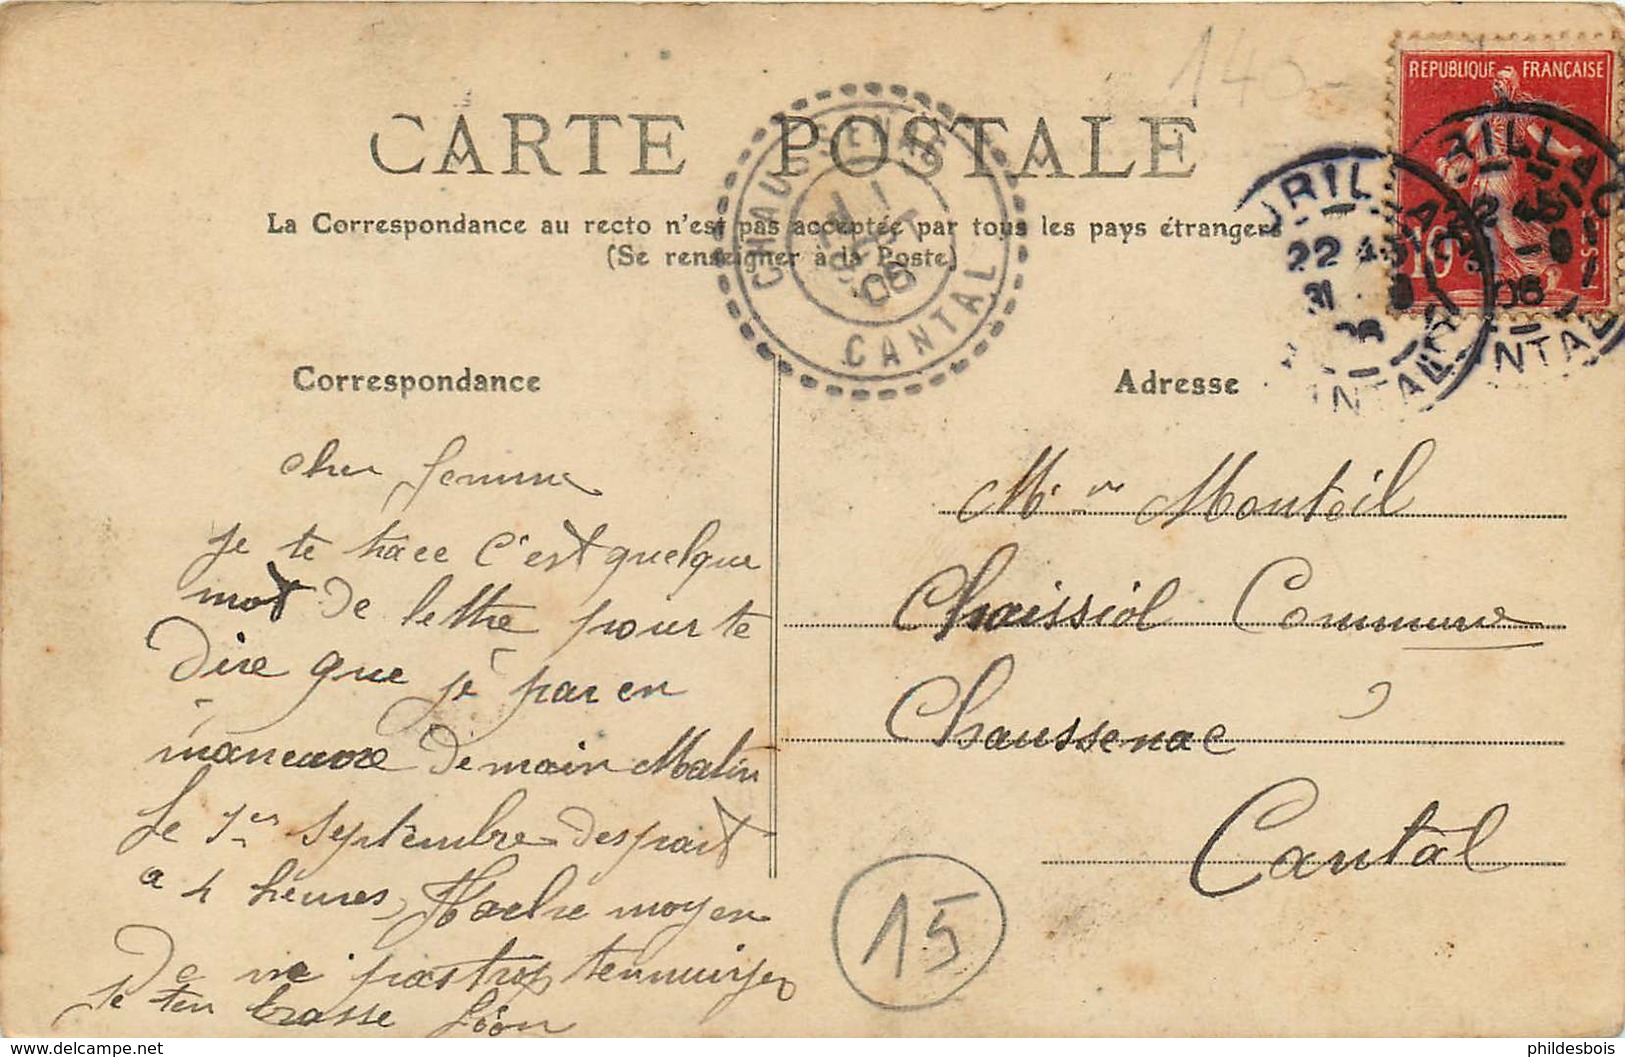 145-
REPUBLIQUE FRANÇAISE
10
CARTE POSTALE
La Correspondance au recto n'est pas acceptée par tous les pays étrangers
(Se renseigner à la Poste)
CHAUSSENAC
1
SEPT
06
CANTAL
AURILLAC
22
31 8
06
CANTAL
AURILLAC
22
31 8
06
CANTAL
Correspondance
cher femme
je te trace c'est quelque
mot de lettre pour te
dire que je par en
maneuvre Demain Matin
le 1er septembre despart
a 4 heures, Tache moyen
De ne pas trop tennuiyer
je ten brasse Léon
Adresse
Mme Monteil
Chaissiol Commune
Chaussenac
Cantal
15
phildesbois